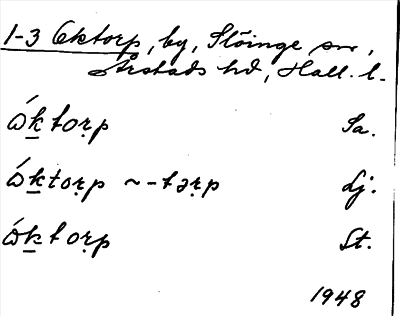 1-3 Oktorp, by, Slöinge sn,
Årstads hd, Hall. l.
ώk̲toṛp Sa.
ώk̲toṛp ~ -təṛp Lj.
ώk̲toṛp St.
1948